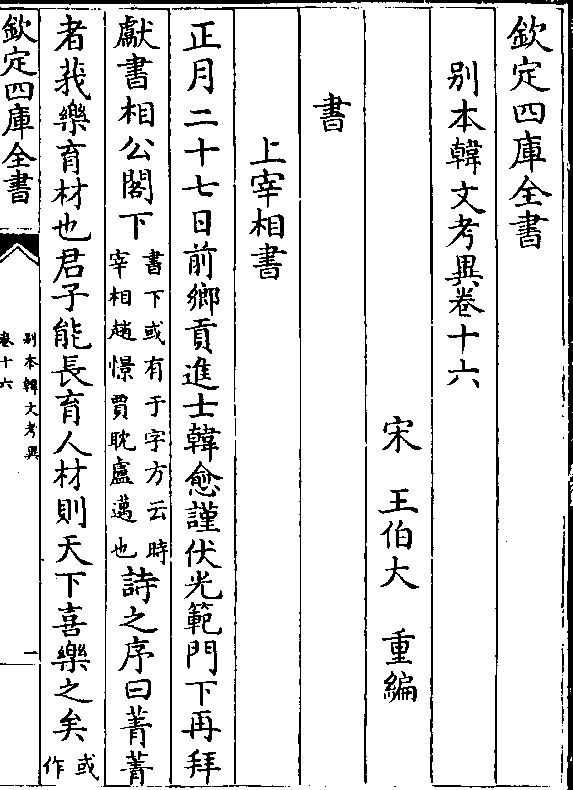 欽定四庫全書
别本韓文考異卷十六
宋　王伯大　重編
書
上宰相書
正月二十七日前鄉貢進士韓愈謹伏光範門下再拜
獻書相公閣下書下或有于字方云時宰相趙憬賈耽盧邁也詩之序曰菁菁
者莪樂育材也君子能長育人材則天下喜樂之矣或作
欽定四庫全書
别本韓文考異
卷十六
一